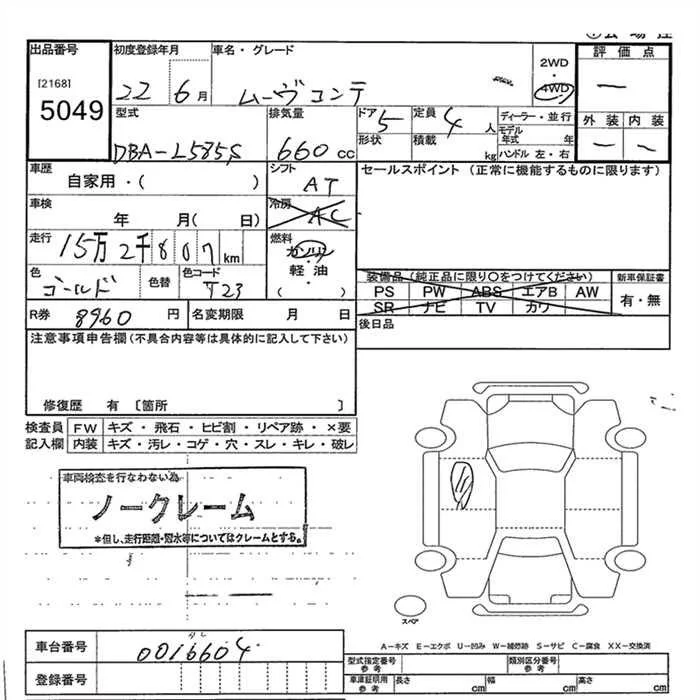 出品番号
[2168]
5049
初度登録年月
22 6月
車名・グレード
ムーヴ コンテ
2WD
・
4WD
評価点
―
外装 内装
― ―
型式
DBA-L585S
排気量
660 cc
ドア 5
形状
定員 4 人
積載 kg
ディーラー・並行
モデル年式 年
ハンドル 左・右
車歴
自家用・( )
シフト
AT
セールスポイント (正常に機能するものに限ります)
車検
年 月( 日)
冷房
AC
走行
15万2千807km
燃料
ガソリン
軽・油
・( )
色
ゴールド
色替
色コード
T23
装備品(純正品に限り○をつけてください)
PS PW ABS エアB AW
SR ナビ TV カワ
新車保証書
有・無
R券 8960 円
名変期限 月 日
後日品
注意事項申告欄(不具合内容等は具体的に記入して下さい)
修復歴 有〔箇所 〕
検査員 FW キズ・飛石・ヒビ割・リペア跡・×要
記入欄 内装 キズ・汚レ・コゲ・穴・スレ・キレ・破レ
車両検査を行なわない為
ノークレーム
*但し、走行距離・冠水等についてはクレームとする。
スペア
A-キズ E-エクボ U-凹み W-補修跡 S-サビ C-腐食 XX-交換済
車台番号
0016604
登録番号
型式指定番号
参考
類別区分番号
参考
車庫証明用
参考
長さ cm
幅 cm
高さ cm